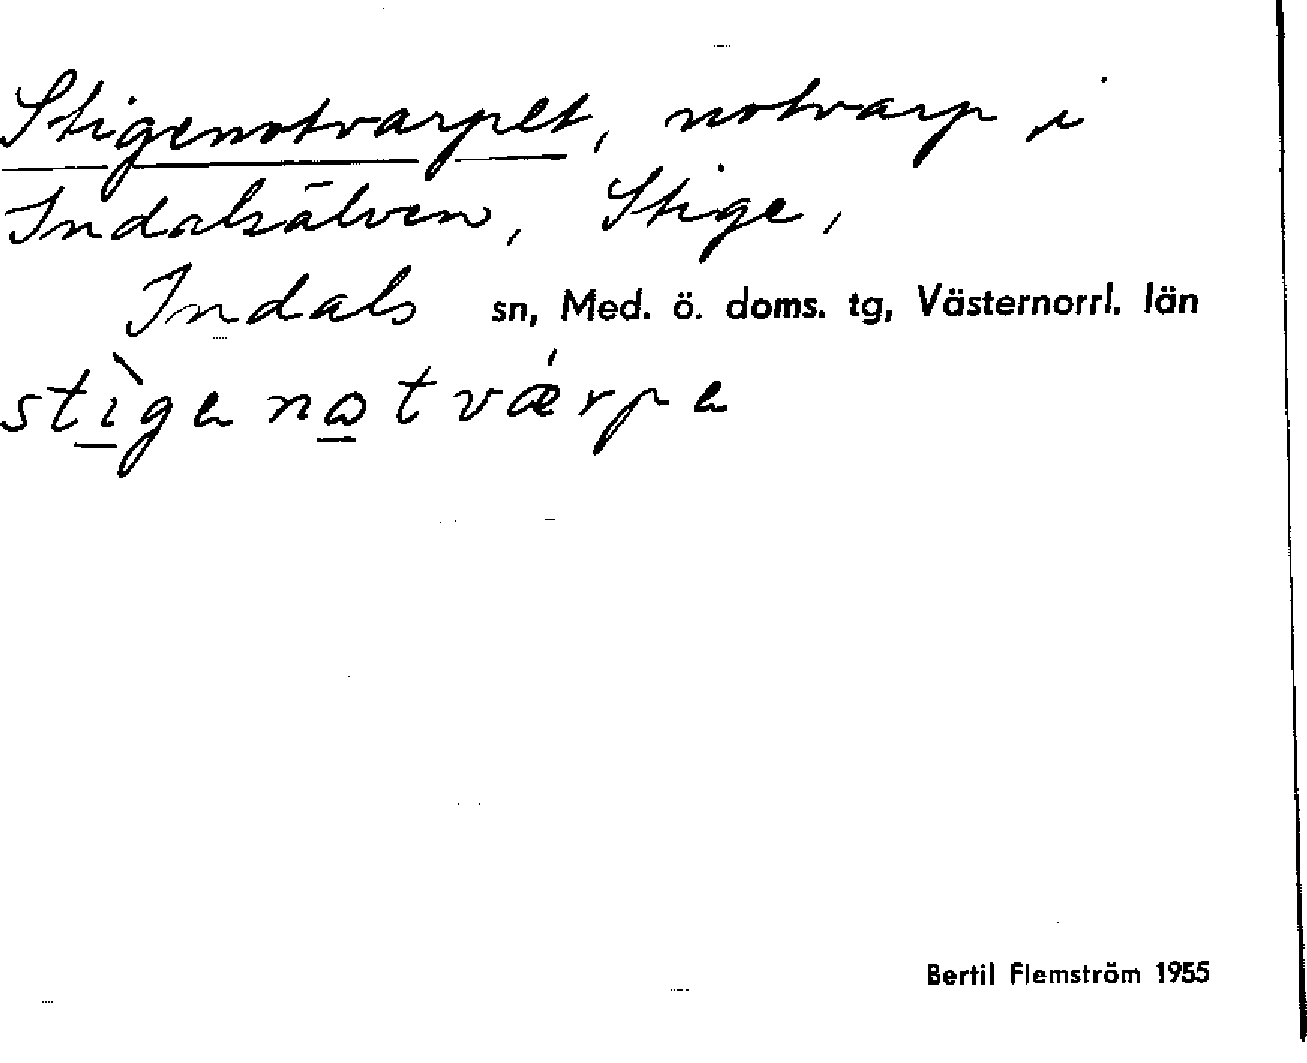 Stigenotvarpet, notvarp i
Indalsälven, Stige,
Indals sn, Med. ö. doms. tg, Västernorrl. län
stìgenotvǽrpe
Bertil Flemström 1955